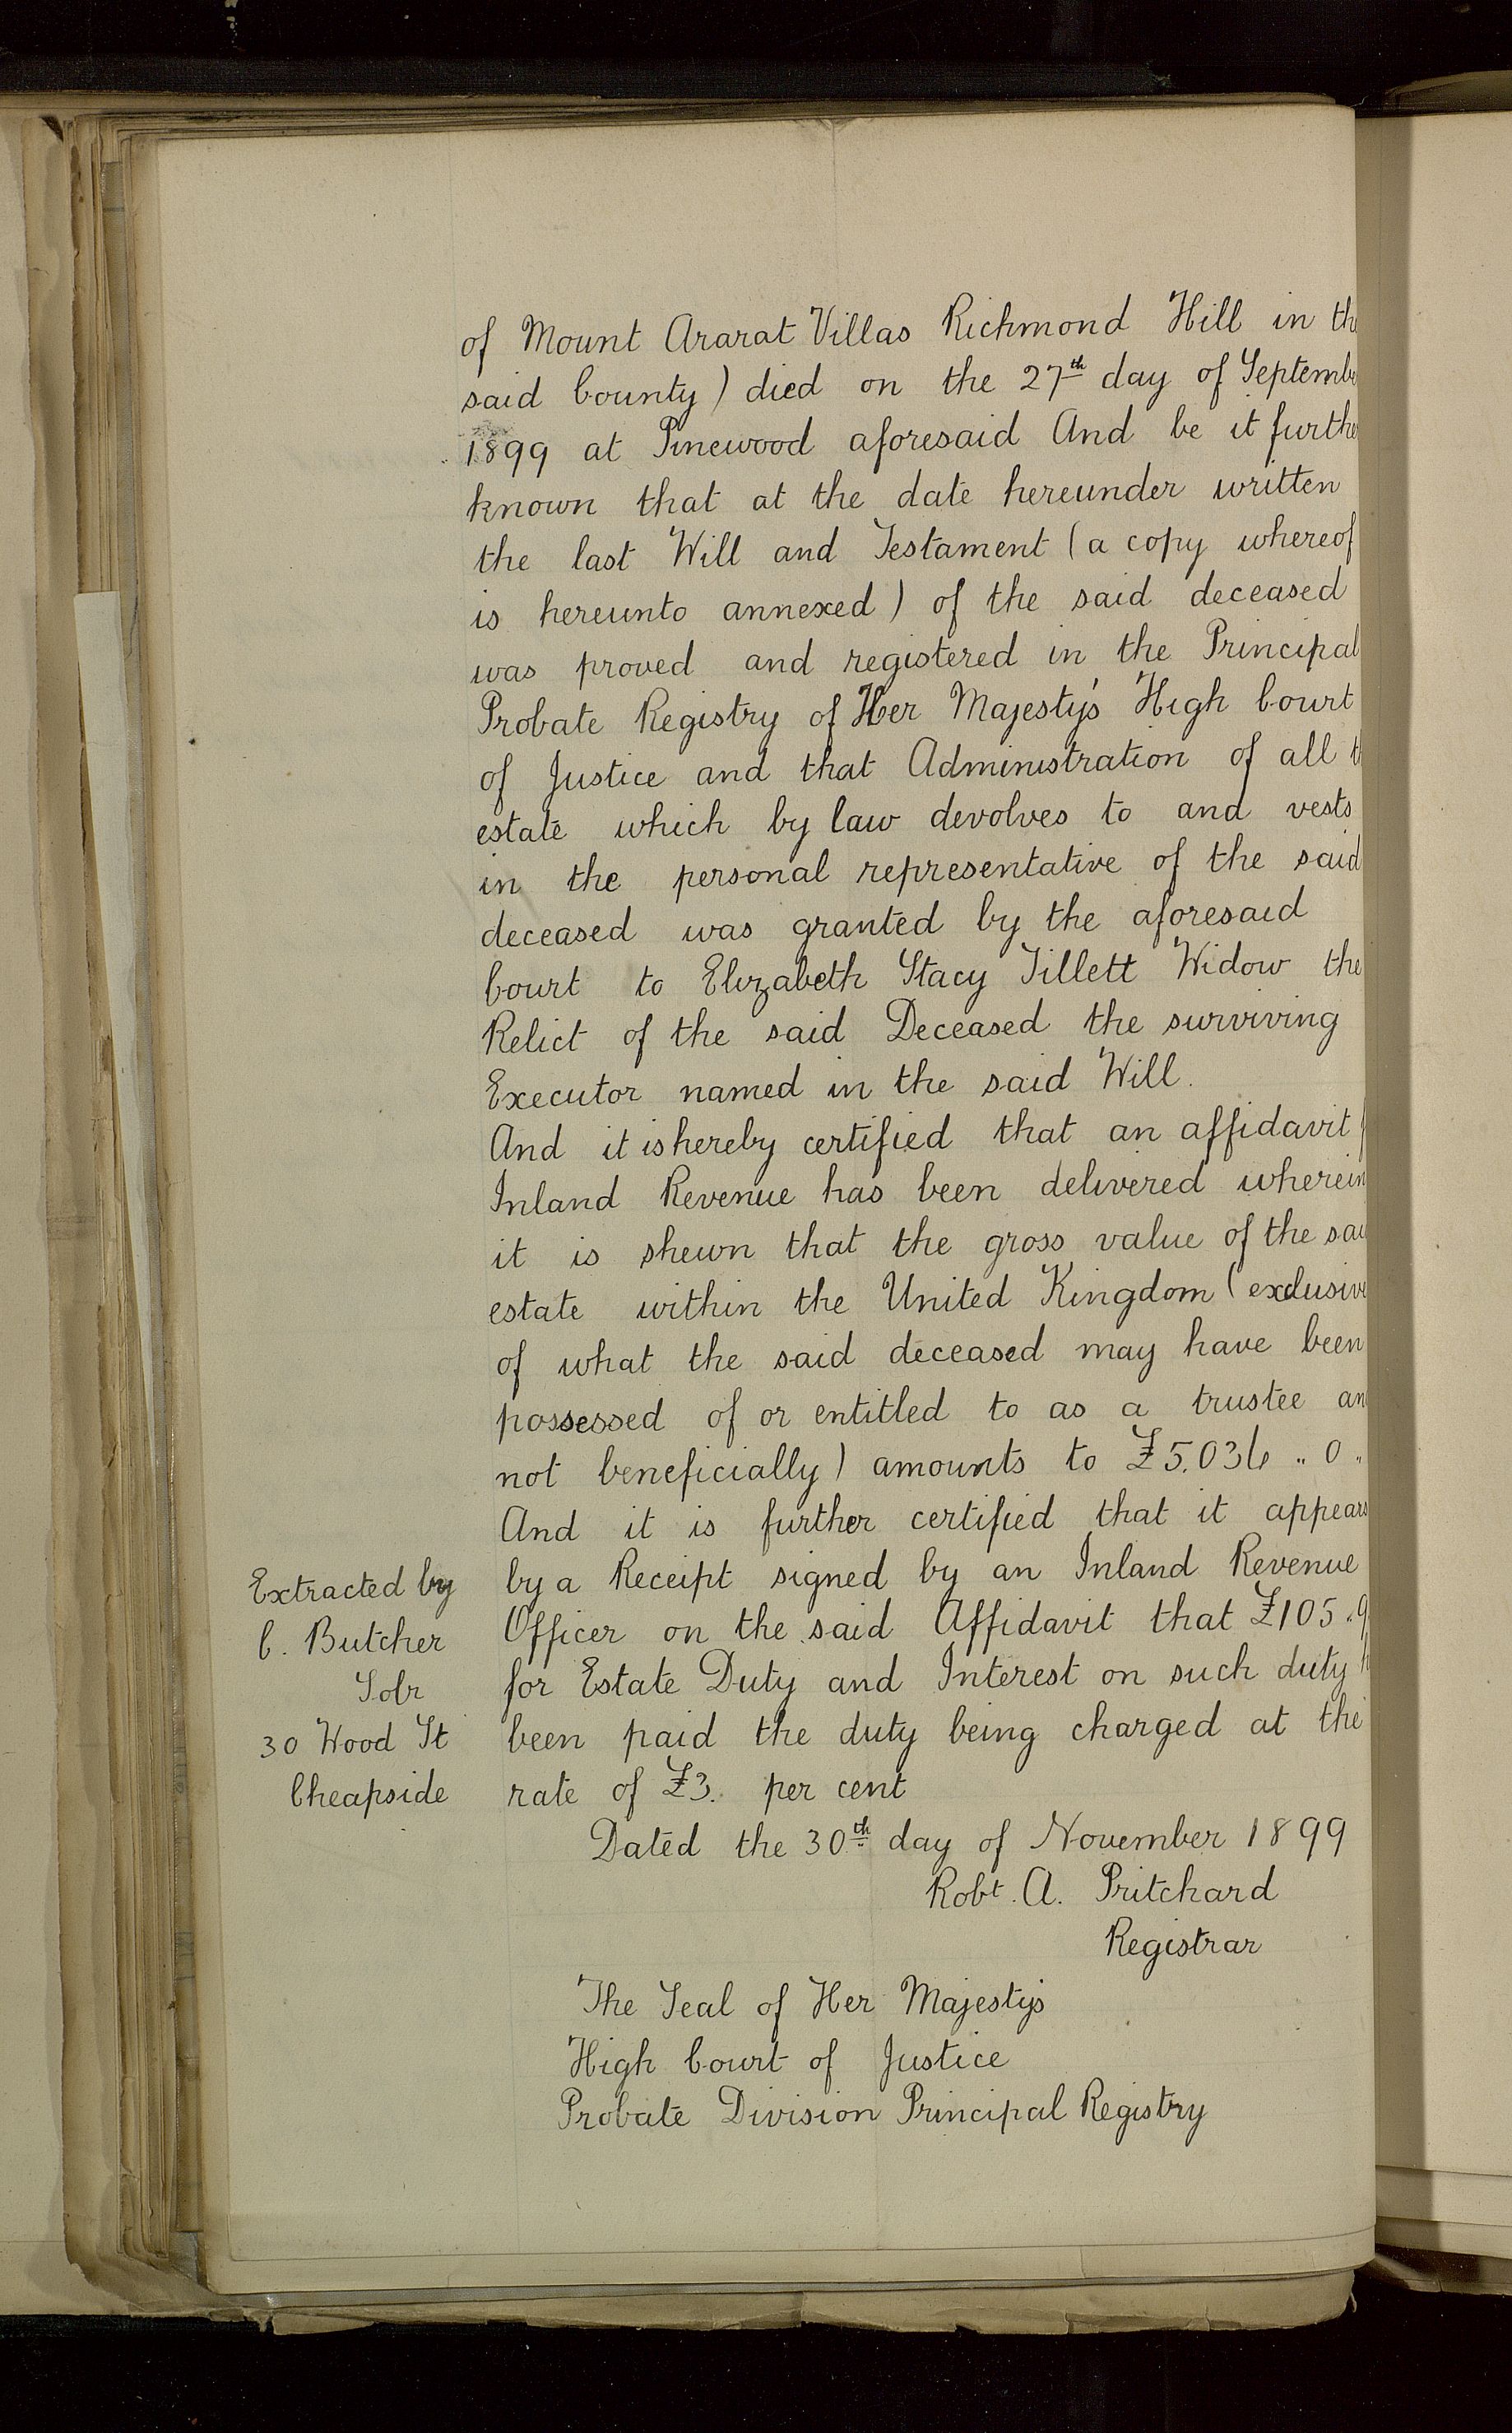 of Mount Ararat Villas Richmond Hill in th
said County) died on the 27th day of Septembe
1899 at Pinewood aforesaid And be it furthe
known that at the date hereunder written
the last Will and Testament (a copy whereof
is hereunto annexed) of the said deceased
was proved and registered in the Principal
Probate Registry of Her Majesty's High Court
of Justice and that Administration of all t
estate which by law devolves to and vests
in the personal representative of the said
deceased was granted by the aforesaid
Court to Elizabeth Stacy Tillett Widow the
Relict of the said Deceased the surviving
Executor named in the said Will.
And it is hereby certified that an affidavit
Inland Revenue has been delivered wherein
it is shewn that the gross value of the sai
estate within the United Kingdom (exclusive
of what the said deceased may have been
possessed of or entitled to as a trustee an
not beneficially) amounts to £5,036 .. 0 ..
And it is further certified that it appears
by a Receipt signed by an Inland Revenue
Officer on the said Affidavit that £105 .. 9
for Estate Duty and Interest on such duty h
been paid the duty being charged at the
rate of £3. per cent
Extracted by
C. Butcher
Solr
30 Wood St
Cheapside
Dated the 30th day of November 1899
Robt. A. Pritchard
Registrar
The Seal of Her Majestys
High Court of Justice
Probate Division Principal Registry